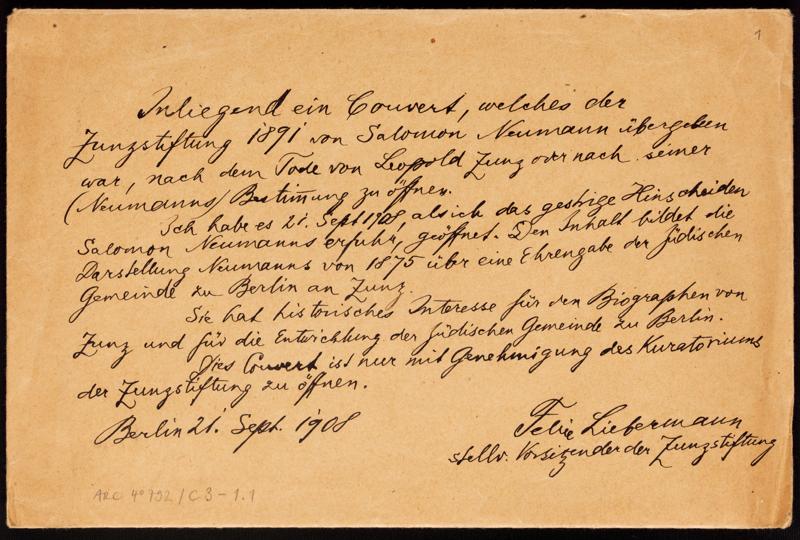 1
Inliegend ein Couvert, welches der
Zunzstiftung 1891 von Salomon Neumann übergeben
war, nach dem Tode von Leopold Zunz oder nach seiner
(Neumanns) Bestim̅ung zu öffnen.
Ich habe es 21. Sept 1908, als ich das gestrige Hinscheiden
Salomon Neumanns erfuhr, geöffnet. Den Inhalt bildet die
Darstellung Neumanns von 1875 über eine Ehrengabe der Jüdischen
Gemeinde zu Berlin an Zunz.
Sie hat historisches Interesse für den Biographen von
Zunz und für die Entwicklung der Jüdischen Gemeinde zu Berlin.
Dies Couvert ist nur mit Genehmigung des Kuratoriums
der Zunzstiftung zu öffnen.
Berlin 21. Sept. 1908
Felix Liebermann
stellv. Vorsitzender der Zunzstiftung
ARC 4° 792 / C3-1.1